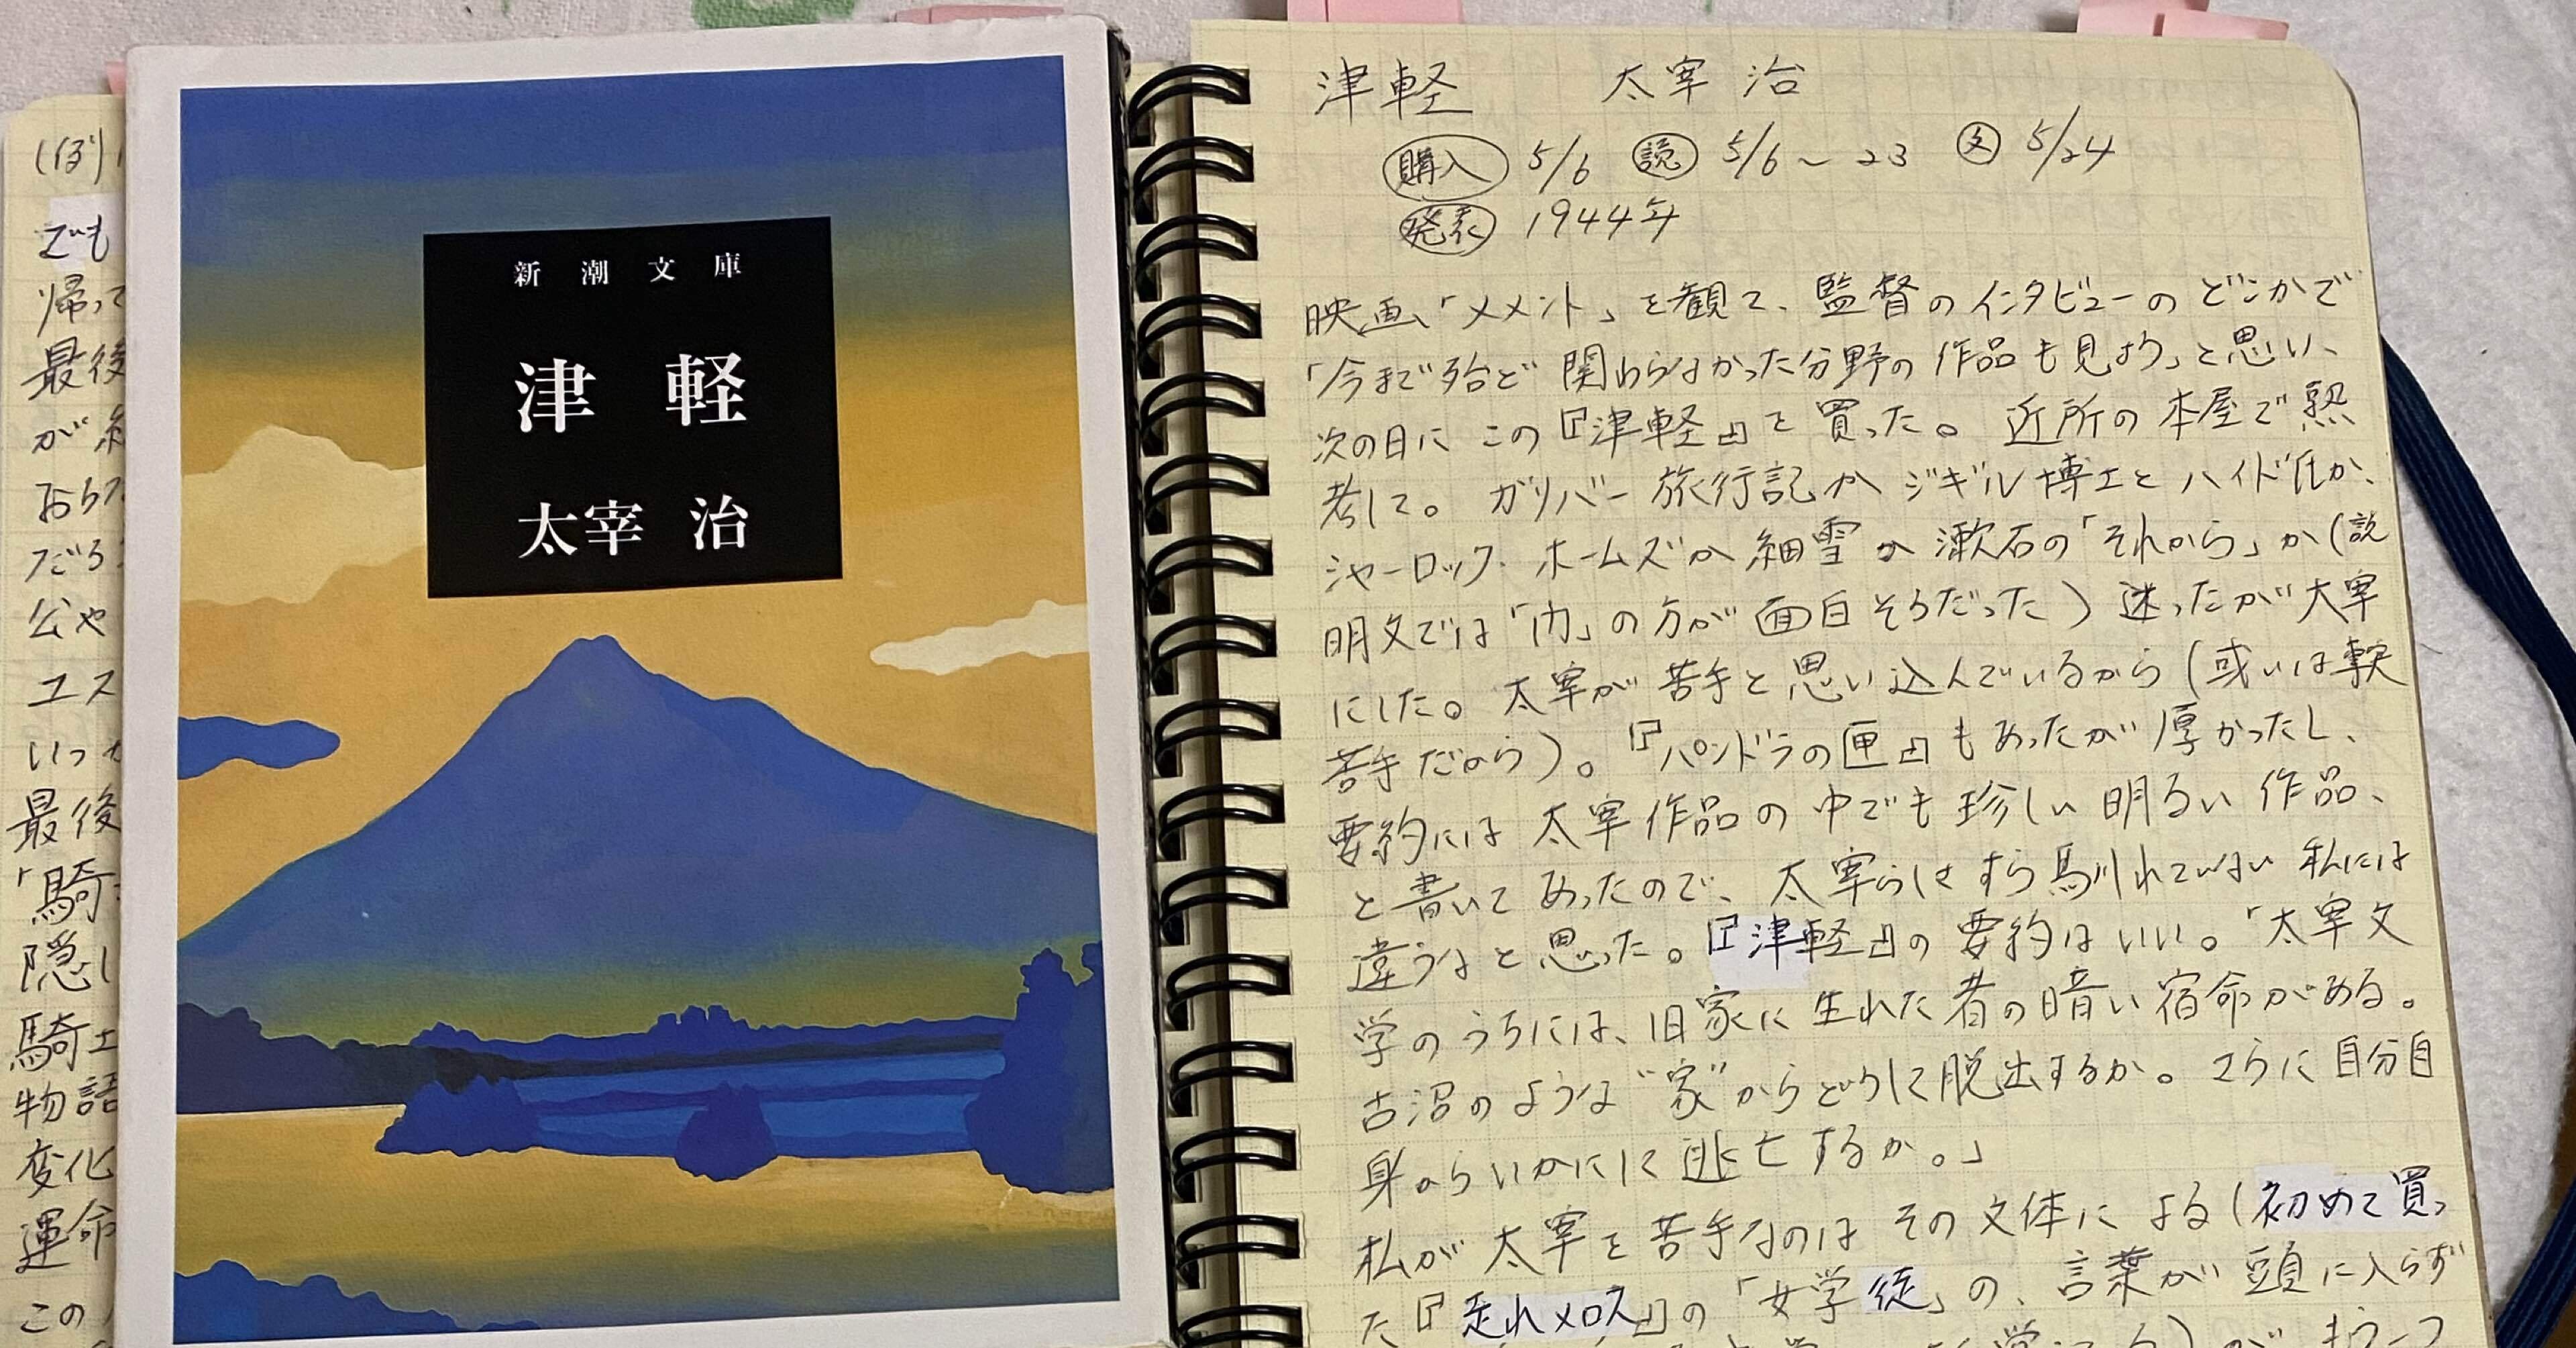 (ぼり
でも
帰って
最後
が
おらた
だろう
公や
ユス
いつか
最後
「騎
隠し
騎士
物語
変化
運命
この
新潮文庫
津軽
太宰 治
津軽 太宰 治
購入 5/6 読 5/6〜23 文 5/24
発表 1944年
映画「メメント」を観て、監督のインタビューのどこかで
「今まで殆ど関わらなかった分野の作品も見よう」と思い、
次の日にこの『津軽』を買った。近所の本屋で熟
考して。ガリバー旅行記かジギル博士とハイド氏か、
シャーロック・ホームズか細雪か漱石の「それから」か(説
明文では「門」の方が面白そうだった)迷ったが太宰
にした。太宰が苦手と思い込んでいるから(或いは事実
苦手だから)。『パンドラの匣』もあったが厚かったし、
要約には太宰作品の中でも珍しい明るい作品、
と書いてあったので、太宰らしさすら馴れていない私には
違うなと思った。『津軽』の要約はいい。「太宰文
学のうちには、旧家に生れた者の暗い宿命がある。
古沼のような“家”からどうして脱出するか。さらに自分自
身からいかにして逃亡するか。」
私が太宰を苦手なのはその文体による(初めて買っ
た『走れメロス』の「女学徒」の、言葉が頭に入らず